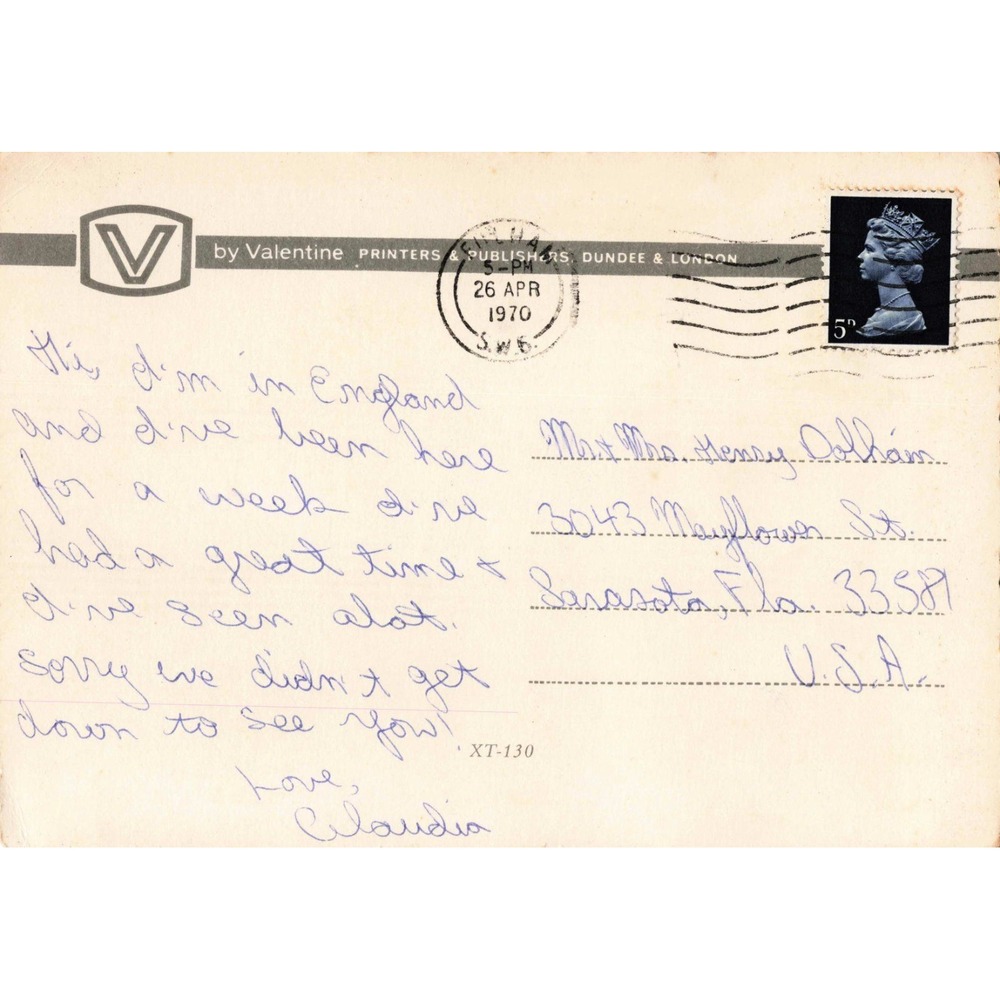 V by Valentine PRINTERS & PUBLISHERS, DUNDEE & LONDON
FULHAM
5-PM
26 APR
1970
S.W.6.
5D
Hi, I'm in England
and I've been here
for a week I've
had a great time &
I've seen alot.
Sorry we didn't get
down to see you!
Love,
Claudia
Mr. & Mrs. Henry Dolham
3043 Mayflower St.
Sarasota, Fla. 33581
U.S.A.
XT-130